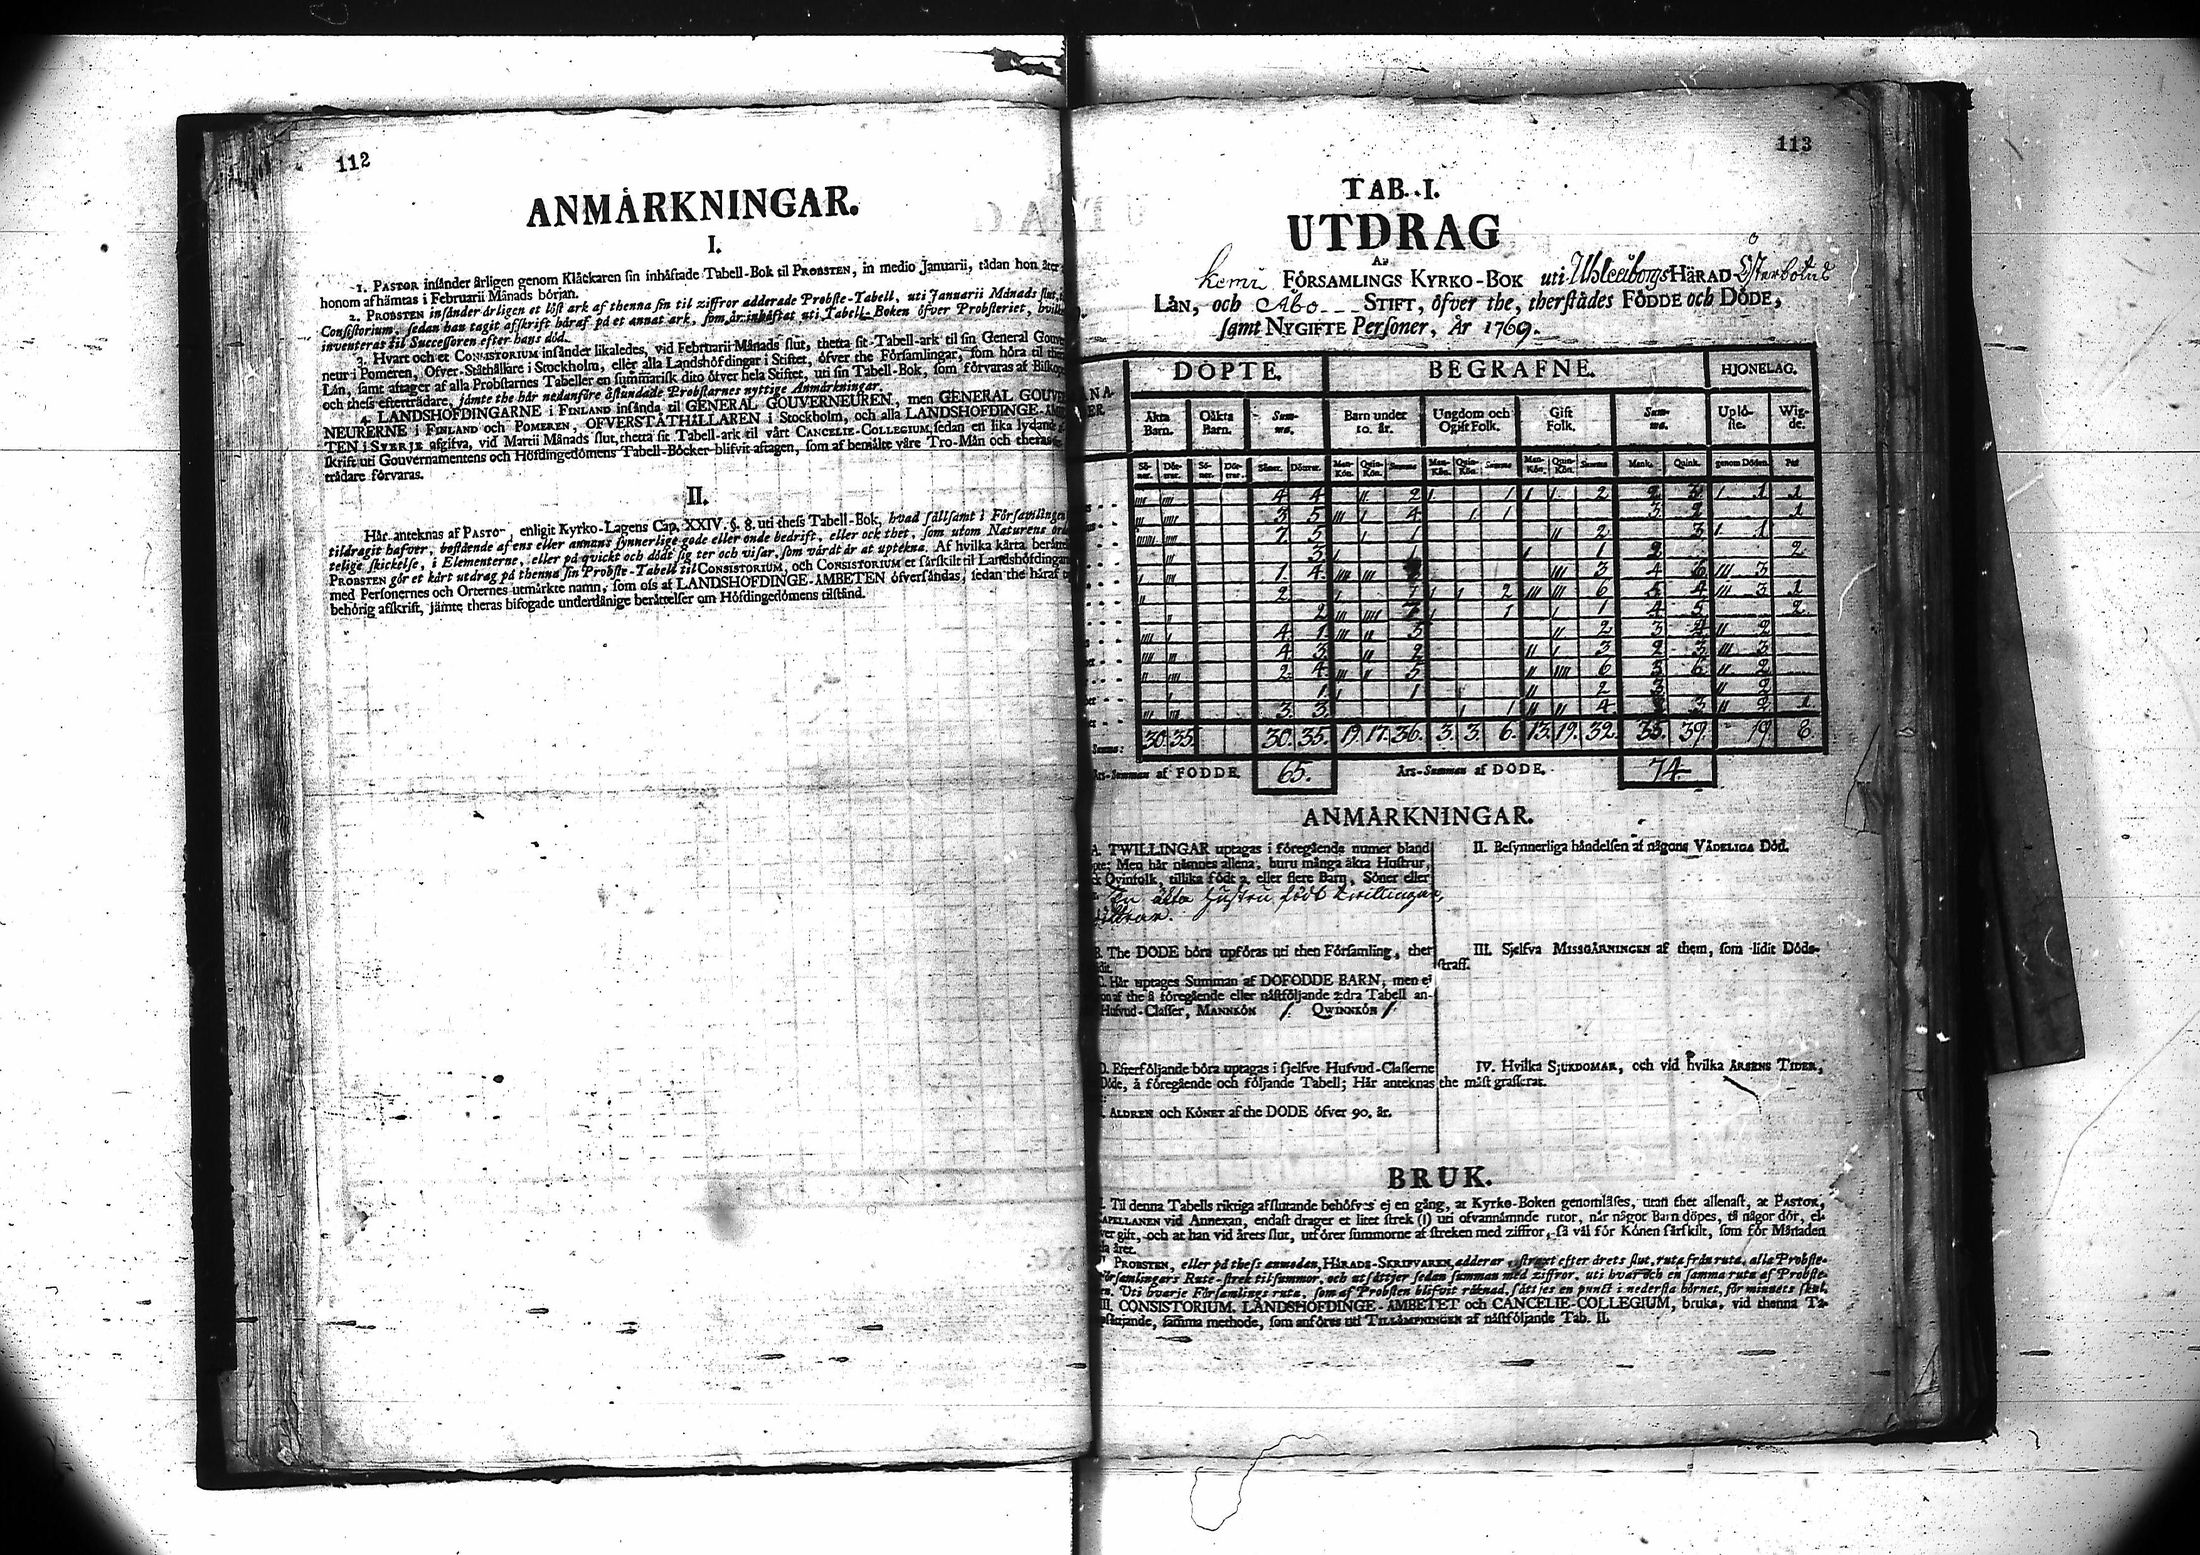 112
ANMÅRKNINGAR.
I.
1. PASTOR insånder årligen genom Klåckaren sin inhåftade Tabell-Bok til PROBSTEN, in medio Januarii, tådan hon åter
honom afhåmtas i Februarii Månads början.
2. PROBSTEN insånder årligen et löst ark af thenna sin til ziffror adderade Probste-Tabell, uti Januarii Månads slut,
Consistorium, sedan han tagit afskrift håraf på et annat ark, som år inhåftat uti Tabell-Boken öfver Probsteriet, hvilket
inventeras til Successoren efter hans död.
3. Hvart och et CONSISTORIUM insånder likaledes, vid Februarii Månads slut, thetta sit Tabell-ark til sin General Gouver
neur i Pomeren, Öfver-Ståthållare i Stockholm, eller alla Landshöfdingar i Stiftet, öfver the Församlingar, som höra til
Lån, samt aftager af alla Probstarnes Tabeller en summarisk dito öfver hela Stiftet, uti sin Tabell-Bok, som förvaras af Biskop
och thess eftertrådare, jåmte the hår nedanföre åstundade Probstarnes nyttige Anmårkningar.
4. LANDSHÖFDINGARNE i FINLAND insånda til GENERAL GOUVERNEUREN, men GENERAL GOUVER
NEURERNE i FINLAND och POMEREN, ÖFVERSTÅTHÅLLAREN i Stockholm, och alla LANDSHÖFDINGE-ÅMBE
TEN i SVERJE afgifva, vid Martii Månads slut, thetta sit Tabell-ark til vårt CANCELIE-COLLEGIUM, sedan en lika lydande
skrift uti Gouvernamentens och Höfdingedömens Tabell-Böcker blifvit aftagen, som af bemålte våre Tro-Mån och theras
trådare förvaras.
II.
Hår anteknas af PASTOR, enligit Kyrko-Lagens Cap. XXIV. §. 8. uti thess Tabell-Bok, hvad sållsamt i Församlingen
tildragit hafver, bestående af ens eller annans synnerlige gode eller onde bedrift, eller ock thet, som utom Naturens ord
telige skickelse, i Elementerne, eller på qvickt och dödt sig ter och visar, som vårdt år at uptekna. Af hvilka kårta beråttel
PROBSTEN gör et kårt utdrag på thenna sin Probste-Tabell til CONSISTORIUM, och CONSISTORIUM et sårskilt til Landshöfdingarne
med Personernes och Orternes utmårkte namn, som oss af LANDSHÖFDINGE-ÅMBETEN öfversåndas, sedan the håraf
behörig afskrift, jåmte theras bifogade underdånige beråttelser om Höfdingedömens tilstånd.
113
TAB. I.
UTDRAG
AF
Kemi FÖRSAMLINGS KYRKO-BOK uti Uhleåborgs HÄRAD Österbotns
LÅN, och Åbo STIFT, öfver the, therstådes FÖDDE och DÖDE,
samt NYGIFTE Personer, År 1769.
DÖPTE. BEGRAFNE. HJONELAG.
Äkta Barn. Oåkta Barn. Summa. Barn under 10. år. Ungdom och Ogift Folk. Gift Folk. Summa. Uplöste. Wigde.
Söner. Döttrar. Söner. Döttrar. Söner. Döttrar. Mankön. Quinkön. Summa Mankön. Quinkön. Summa Mankön. Quinkön. Summa Mank. Quink. genom Döden. Par
4 4 2 1 2 2 3 1 1
3 5 4 1 3 2 1
7 5 1 2 3 1
3 1 1 2 2
1. 4. 3 4 6 3
2 1 2 6 5 4 3 1
2 7 1 1 4 5 2
4. 1. 5 2 3 4 2
4 3 2 3 2 3 3
2 4 5 6 3 6 2
1 1 2 3 2
3. 3. 1 4 3 2 1
Summa: 30. 35 30. 35. 19. 17. 36. 3. 3. 6. 13. 19. 32. 35. 39. 19. 8.
Års-Summan af FÖDDE. 65. Års-Summan af DÖDE. 74.
ANMÅRKNINGAR.
A. TWILLINGAR uptagas i föregående numer bland
Men hår nåmnes allena, huru många åkta Hustrur,
Qvinfolk, tillika födt 2. eller flere Barn, Söner eller
En åkta Hustru födt twillingar,
B. The DÖDE böra upföras uti then Församling, ther
C. Hår uptages Summan af DÖFÖDDE BARN; men ej
af the å föregående eller nåstföljande 2:dra Tabell an-
Hufvud-Classer, MANNKÖN 1. QWINNKÖN 1.
D. Efterföljande böra uptagas i sjelfve Hufvud-Classerne
Döde, å föregående och följande Tabell; Hår anteknas
ÅLDREN och KÖNET af the DÖDE öfver 90. år.
II. Besynnerliga håndelsen af någons VÅDELIGA Död.
III. Sjelfva MISSGÅRNINGEN af them, som lidit Döds-
straff.
IV. Hvilka SJUKDOMAR, och vid hvilka ÅRSENS TIDER,
the måst grasserat.
BRUK.
I. Til denna Tabells riktiga afslutande behöfves ej en gång, at Kyrko-Boken genomlåses, utan thet allenast, at PASTOR,
CAPELLANEN vid Annexan, endast drager et litet strek (I) uti ofvannåmnde rutor, når något Barn döpes, tå någor dör, el-
ler gift, och at han vid årets slut, utförer summorne af streken med ziffror, så vål för Könen sårskilt, som för Månaden
året.
PROBSTEN, eller på thess anmodan, HÄRADS-SKRIFVAREN, adderar straxt efter årets slut, ruta från ruta, alla Probste-
Församlingars Rute-strek til summor, och utsåttjer sedan summan med ziffror, uti hvar och en samma ruta af Probste-
n. Uti hvarje Församlings ruta, som af Probsten blifvit råknad, såttjes en punct i nedersta hörnet, för minnets skul.
III. CONSISTORIUM, LANDSHÖFDINGE-ÅMBETET och CANCELIE-COLLEGIUM, bruka, vid thenna Ta-
samma methode, som anföres uti TILLÅMPNINGEN af nåstföljande Tab. II.